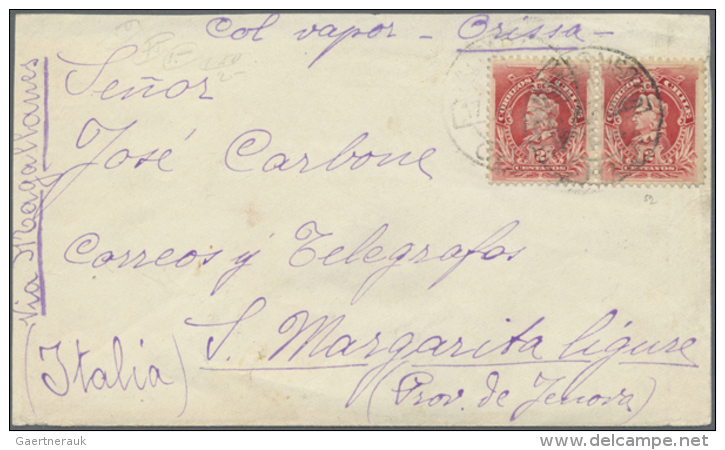 Col vapor - Orissa -
Señor
José Carbone
Correos y Telegrafos
S. Margarita ligure
(Prov. de Jenova)
(Italia)
Via Magallanes
CORREOS CHILE
CENTAVOS
CORREOS CHILE
CENTAVOS
Gaertnerauk
www.delcampe.net